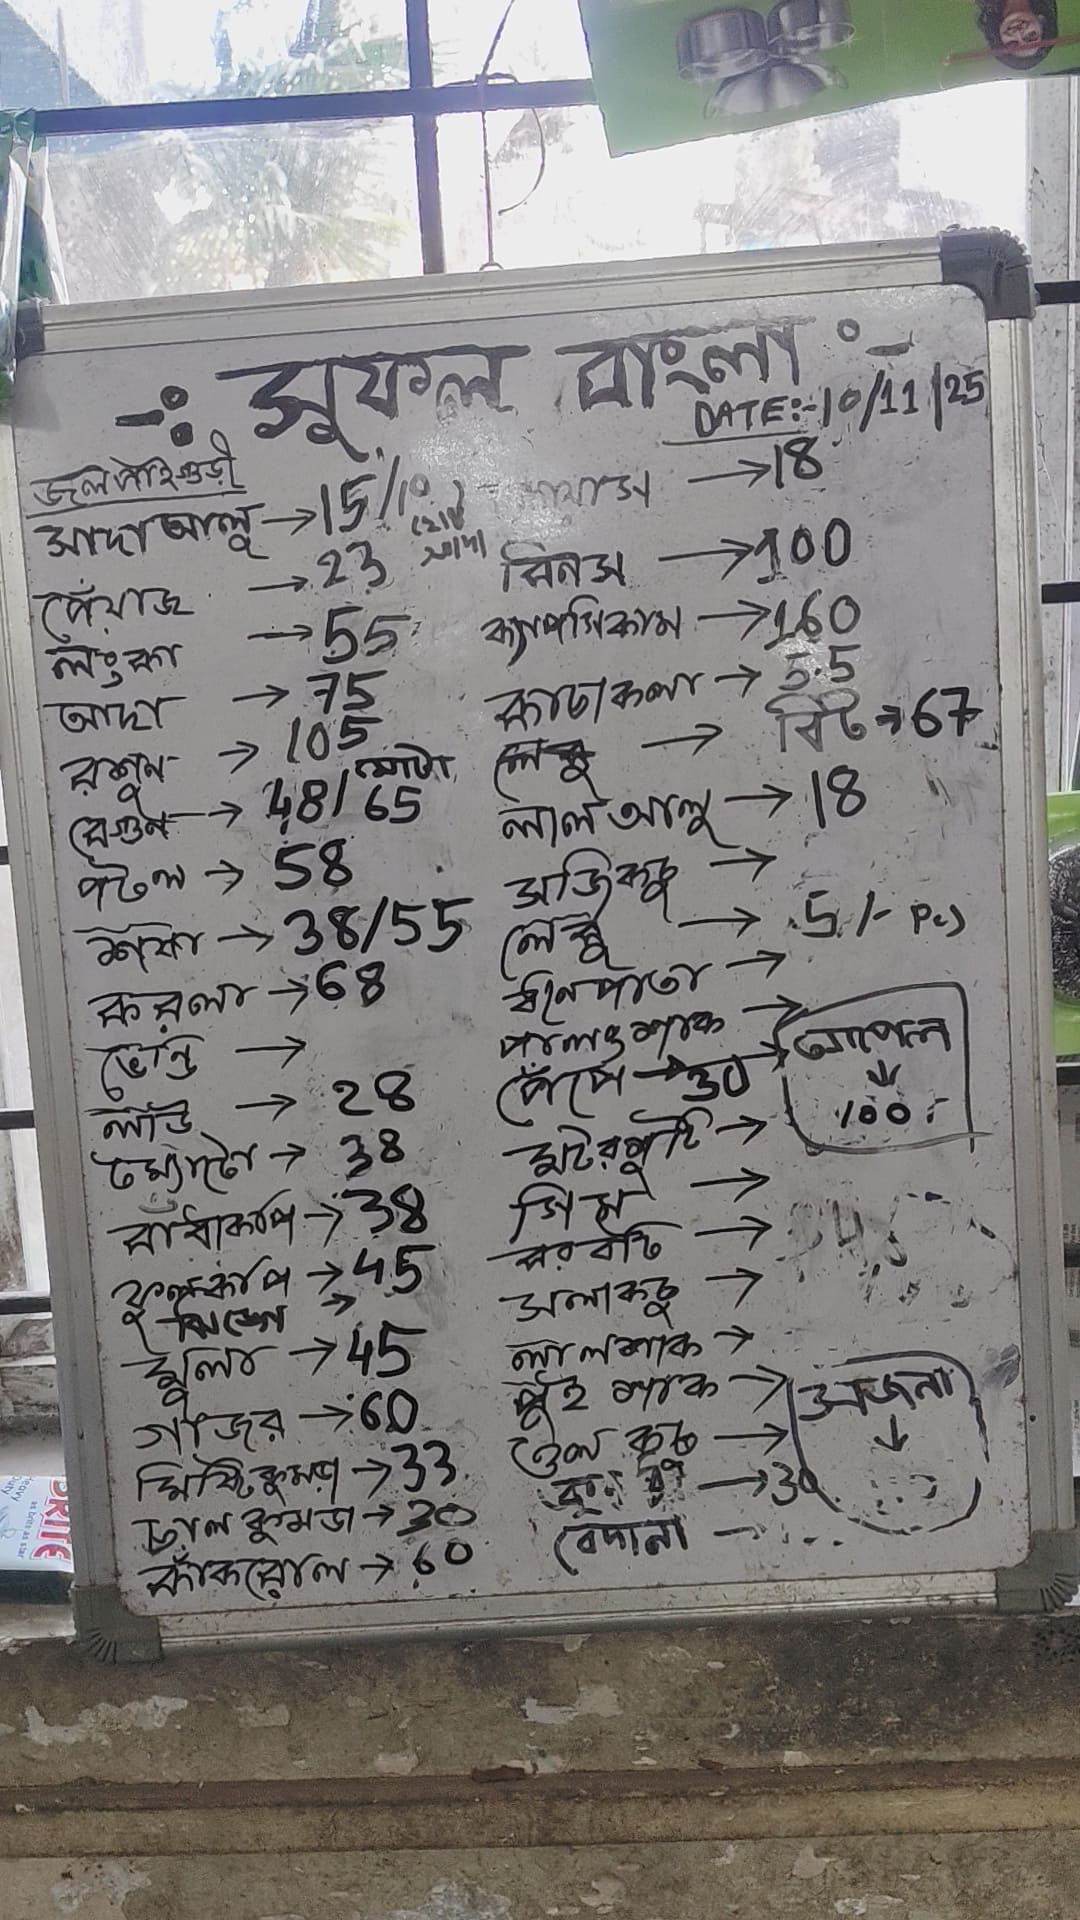 -: সুফল বাংলা :-
DATE:-10/11/25
জলপাইগুড়ী
সাদা আলু → 15/10 ছোট
সাদা
পেঁয়াজ → 23
লংকা → 55
আদা → 75
রশুন → 105
বেগুন → 48/65 মোটা
পটল → 58
শষা → 38/55
করলা → 68
ভেন্ডি →
লাউ → 28
টম্যাটো → 38
বাঁধাকপি → 38
ফুলকপি → 45
ঝিঙ্গে →
মুলা → 45
গাজর → 60
মিষ্টি কুমড়া → 33
চাল কুমড়া → 30
কাঁকরোল → 60
→ 18
বিনস → 100
ক্যাপসিকাম → 160
কাচাকলা → 5.5
লেবু → বিট → 67
লাল আলু → 18
সজিকচু →
লেবু → 5/- Pcs
ধনেপাতা →
পালংশাক →
পেঁপে → 30
আপেল
↓
100
মটরশুটি →
সিম →
বরবটি →
সলাকচু →
লালশাক →
পুঁই শাক →
ওল কচু →
সজনা
↓
→ 30
বেদানা
heavy
DRITE